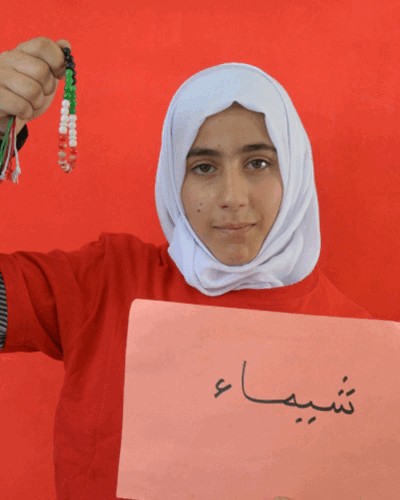 شيماء